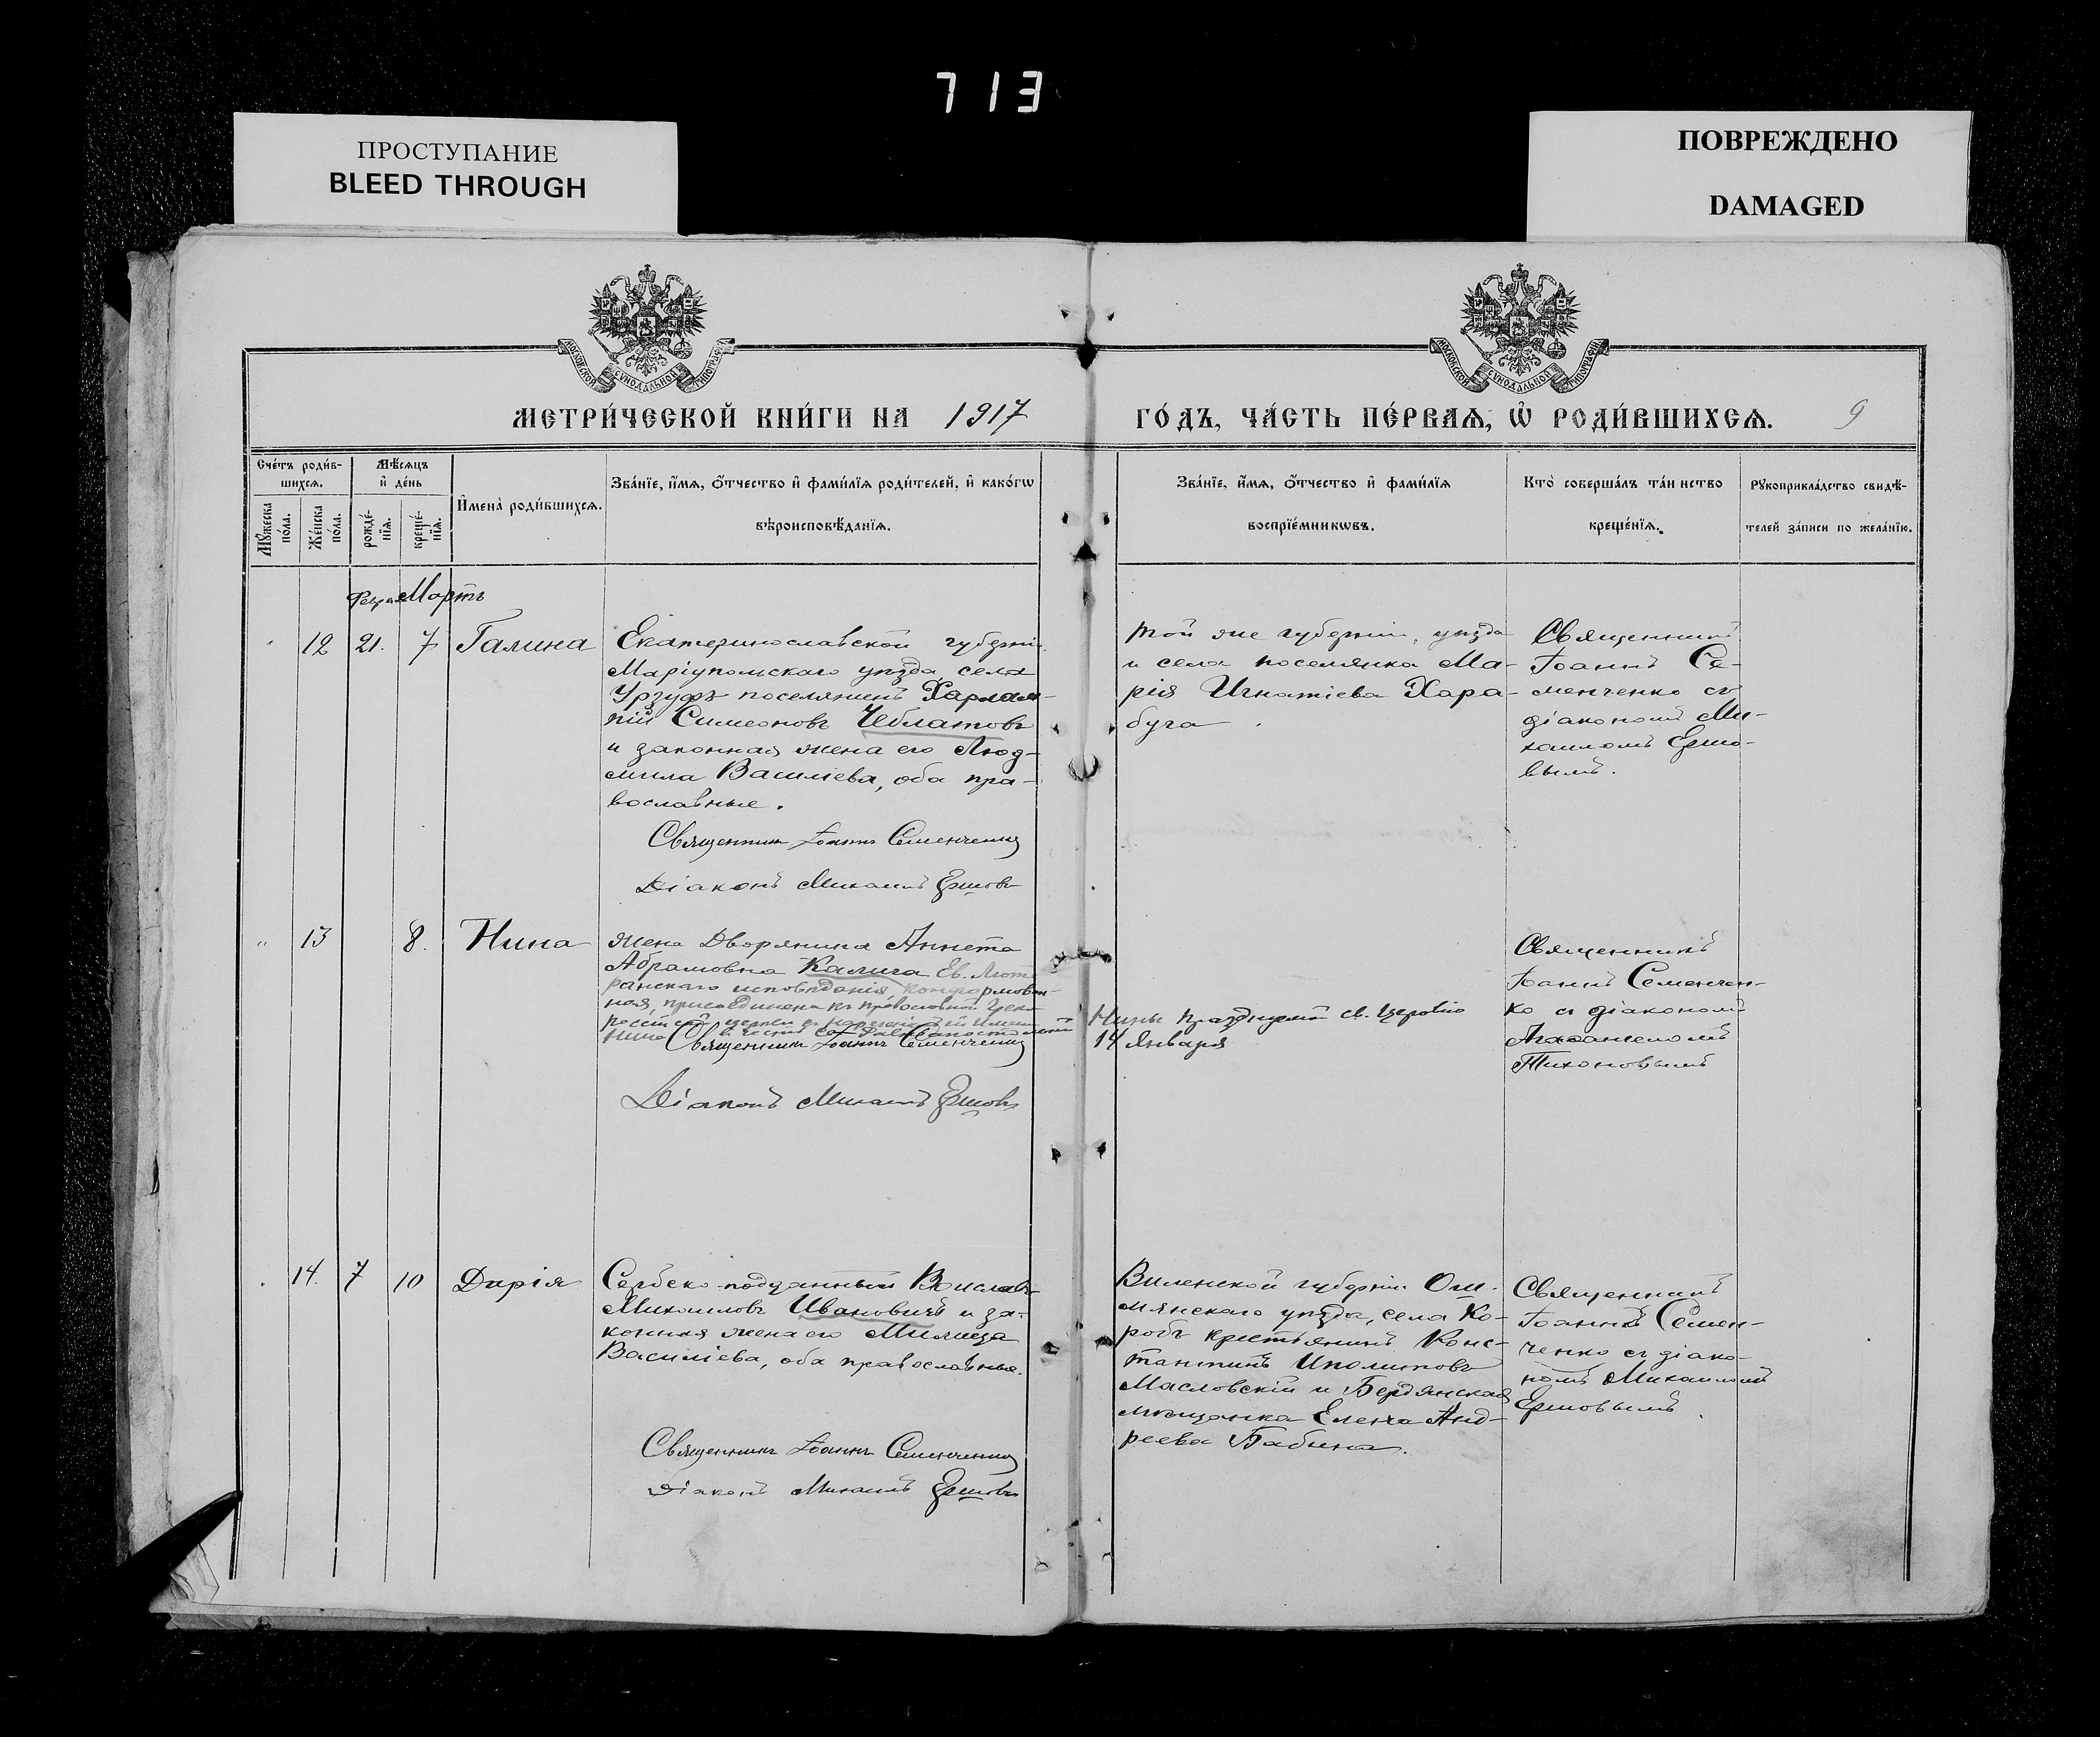 713
ПРОСТУПАНИЕ
BLEED THROUGH
ПОВРЕЖДЕНО
DAMAGED
МОСКОВСКОЙ СѴНОДАЛЬНОЙ ТИПОГРАФІИ
МОСКОВСКОЙ СѴНОДАЛЬНОЙ ТИПОГРАФІИ
МЕТРИ́ЧЕСКОЙ КНИ́ГИ НА 1917
ГО́ДЪ, ЧА́СТЬ ПЕ́РВАѦ, Ѡ҆ РОДИ́ВШИХСѦ. 9
Сче́тъ роди́в-
шихсѧ.
Мꙋ́жеска
по́ла.
Же́нска
по́ла.
Мѣ́сѧцъ
и҆ де́нь
рожде́-
нїѧ.
креще́-
нїѧ.
И҆мена̀ роди́вшихсѧ.
Зва́нїе, и҆́мѧ, ѻ҆́тчество и҆ фами́лїѧ роди́телей, и҆ како́гѡ
вѣроисповѣ́данїѧ.
Зва́нїе, и҆́мѧ, ѻ҆́тчество и҆ фами́лїѧ
воспрїе́мникѡвъ.
Кто̀ соверша́лъ та́инство
креще́нїѧ.
Рꙋкоприкла́дство свидѣ́-
телей за́писи по жела́нїю.
Мартъ
12 21. 7 Галина
Екатеринославской губерніи
Маріупольскаго уѣзда, села
Урзуфъ поселянинъ Харлам-
пій Симеоновъ Чебланов
и законная жена его Люд-
мила Василіева, оба пра-
вославные.
Священникъ Іоаннъ Семенченко
Діаконъ Михаилъ Ершовъ
Той же губерніи, уѣзда
и села поселянка Ма-
рія Игнатіева Хара-
буга.
Священникъ
Іоаннъ Се-
менченко съ
діакономъ Ми-
хаиломъ Ершо-
вымъ.
„ 13 8. Нина
жена Дворянина Аннета
Абрамовна Калига Ев. Люте
ранскаго исповѣданія конфирмован-
ная, присоединена къ православной Греко
россійской церкви съ нареченіемъ ей имени
Нина въ честь св. равноапостольной
Священникъ Іоаннъ Семенченко
Діаконъ Михаилъ Ершовъ
Нины празднуемой св. Церковію
14 Января
Священникъ
Іоаннъ Семенчен-
ко съ діакономъ
Тихоновымъ
14. 7 10 Дарія
Сербско-подданный Воиславъ
Михаиловъ Ивановичъ и за-
конная жена его Милица
Василіева, оба православные.
Священникъ Іоаннъ Семенченко
Діаконъ Михаилъ Ершовъ
Виленской губерніи Ош-
мянскаго уѣзда, села Ко-
робъ крестьянинъ Конс-
тантинъ Иполитовъ
Масловскій и Бердянская
мѣщанка Елена Анд-
реева Бабина.
Священникъ
Іоаннъ Семен-
ченко съ діако-
номъ Михаиломъ
Ершовымъ.